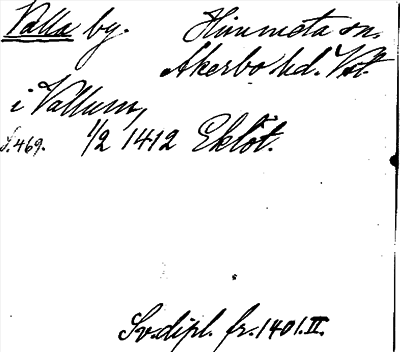 Valla by. Himmeta sn,
Åkerbo hd. Vstm.
i Vallum,
S. 469. 1/2 1412 Eklöt.
Sv. dipl. fr. 1401. II.